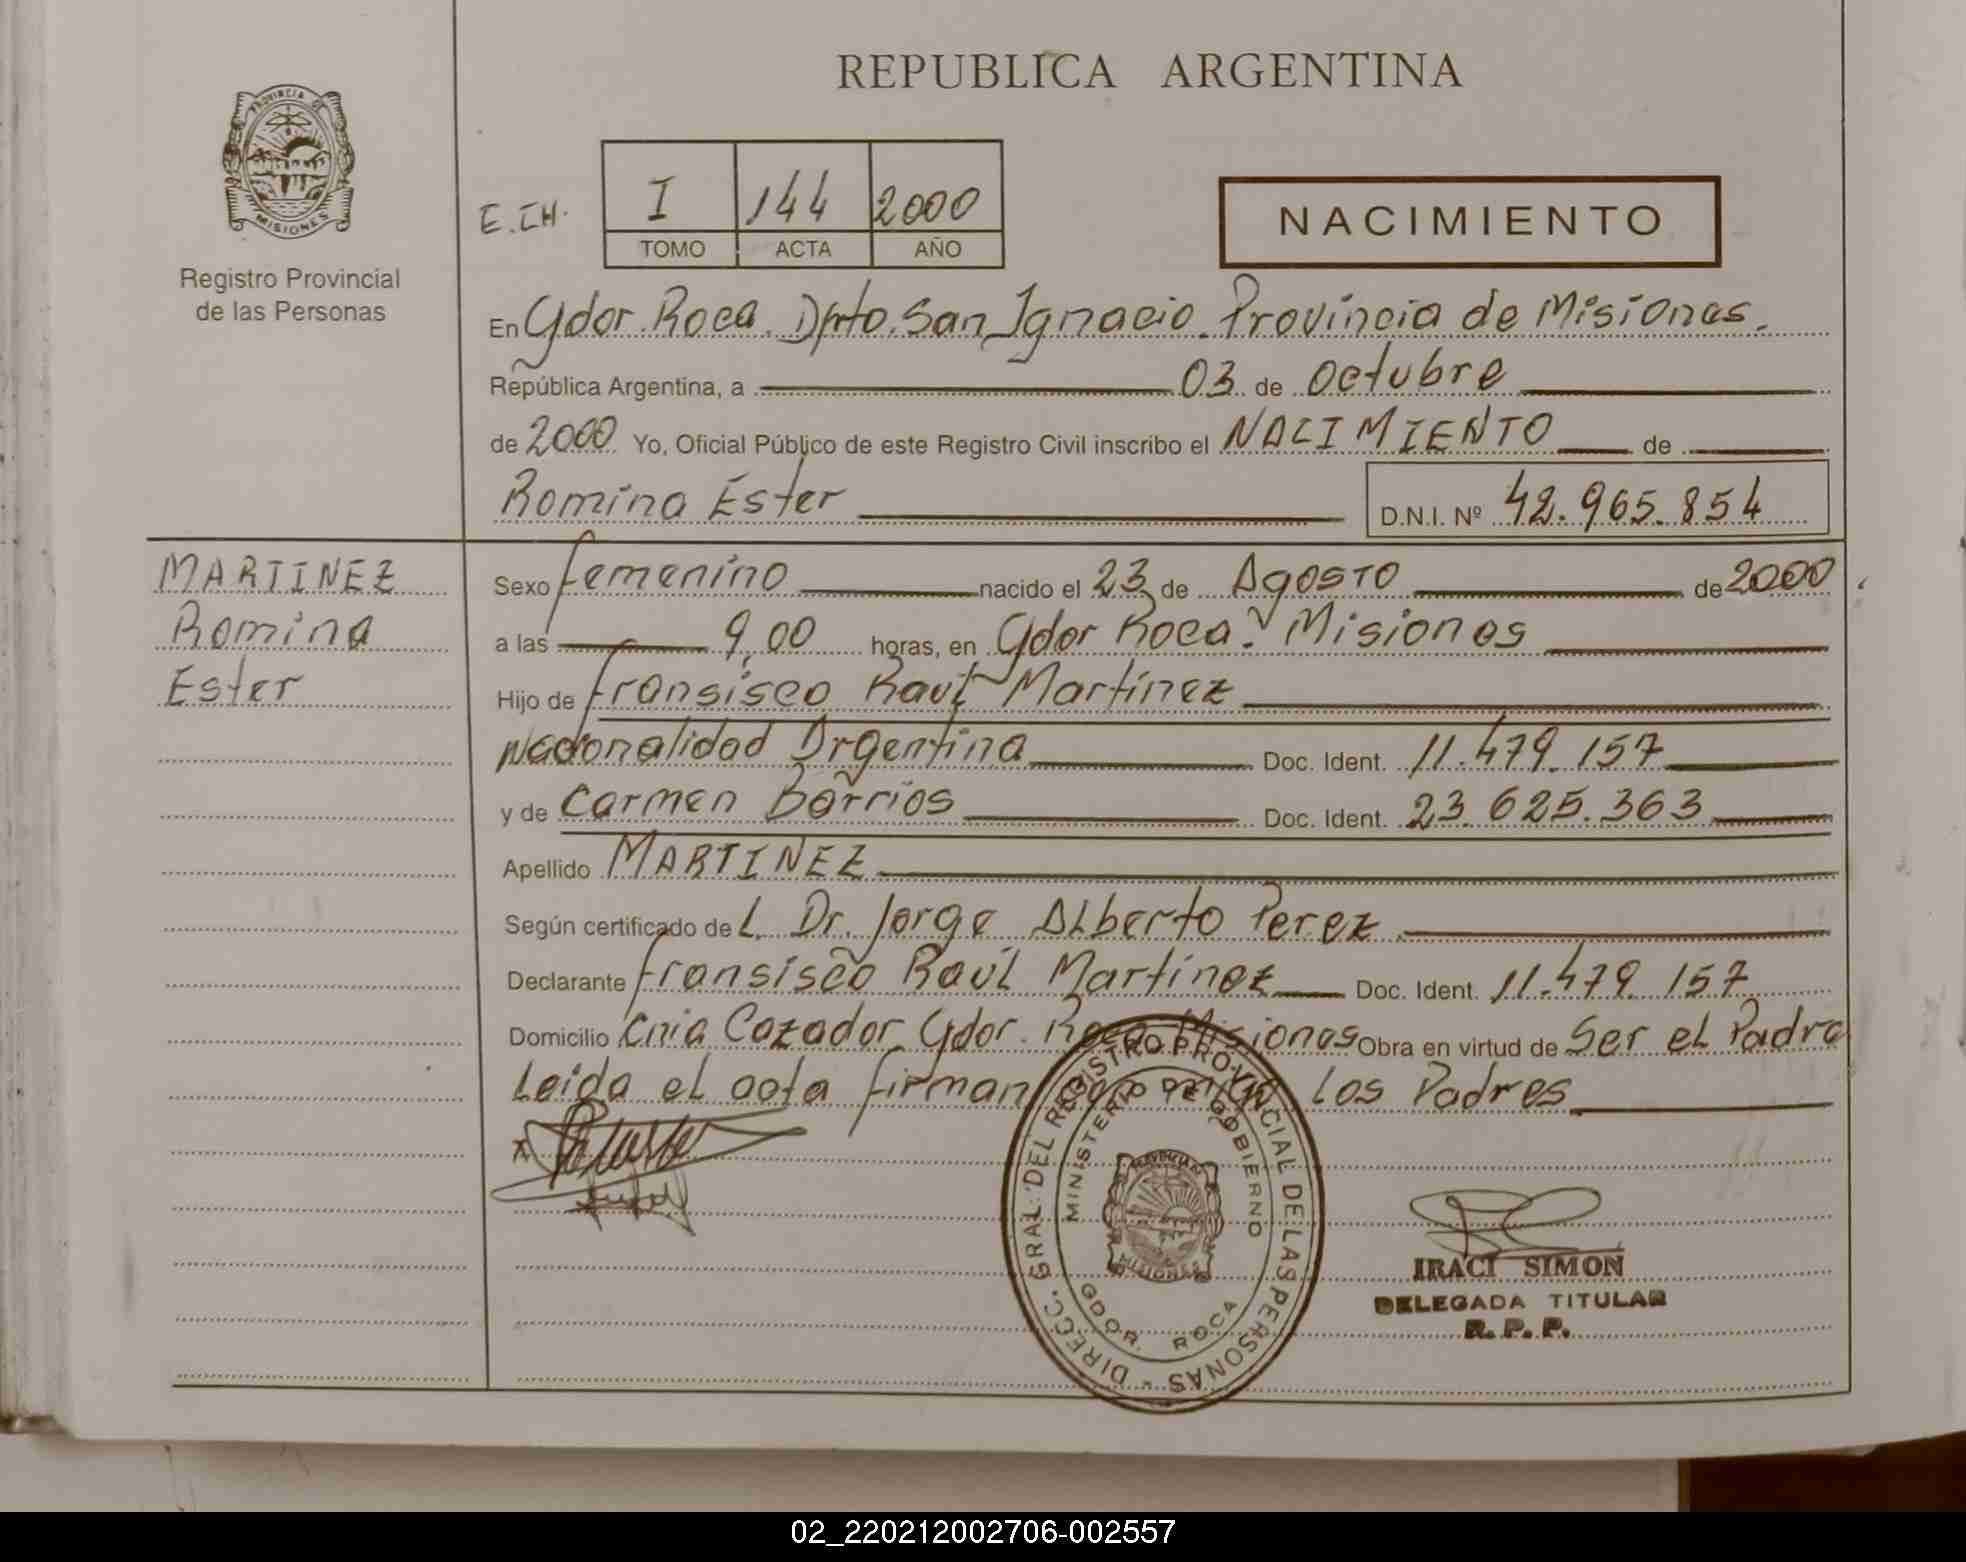 REPUBLICA ARGENTINA
PROVINCIA DE
MISIONES
Registro Provincial
de las Personas
E.CH.
I 144 2000
TOMO ACTA AÑO
NACIMIENTO
En Gdor. Roca. Dpto. San Ignacio. Provincia de Misiones.
República Argentina, a 03 de octubre
de 2000 Yo, Oficial Público de este Registro Civil inscribo el NACIMIENTO de
Romina Ester D.N.I. Nº 42.965.854
MARTINEZ
Romina
Ester
Sexo femenino nacido el 23 de Agosto de 2000
a las 9,00 horas, en Gdor Roca. Misiones
Hijo de Fransisco Raúl Martínez
Nacionalidad Argentina Doc. Ident. 11.479.157
y de Carmen Barrios Doc. Ident. 23.625.363
Apellido MARTINEZ
Según certificado de L. Dr. Jorge Alberto Perez
Declarante Fransisco Raúl Martínez Doc. Ident. 11.479.157
Domicilio Cnia Cazador Gdor. Roca Misiones Obra en virtud de Ser el Padre
Leida el acta firman conmigo Los Padres
x
DIRECC. GRAL. DEL REGISTRO PROVINCIAL DE LAS PERSONAS -
MINISTERIO DE GOBIERNO
PROVINCIA DE
MISIONES
GDOR. ROCA
IRACI SIMON
DELEGADA TITULAR
R. P. P.
02_220212002706-002557